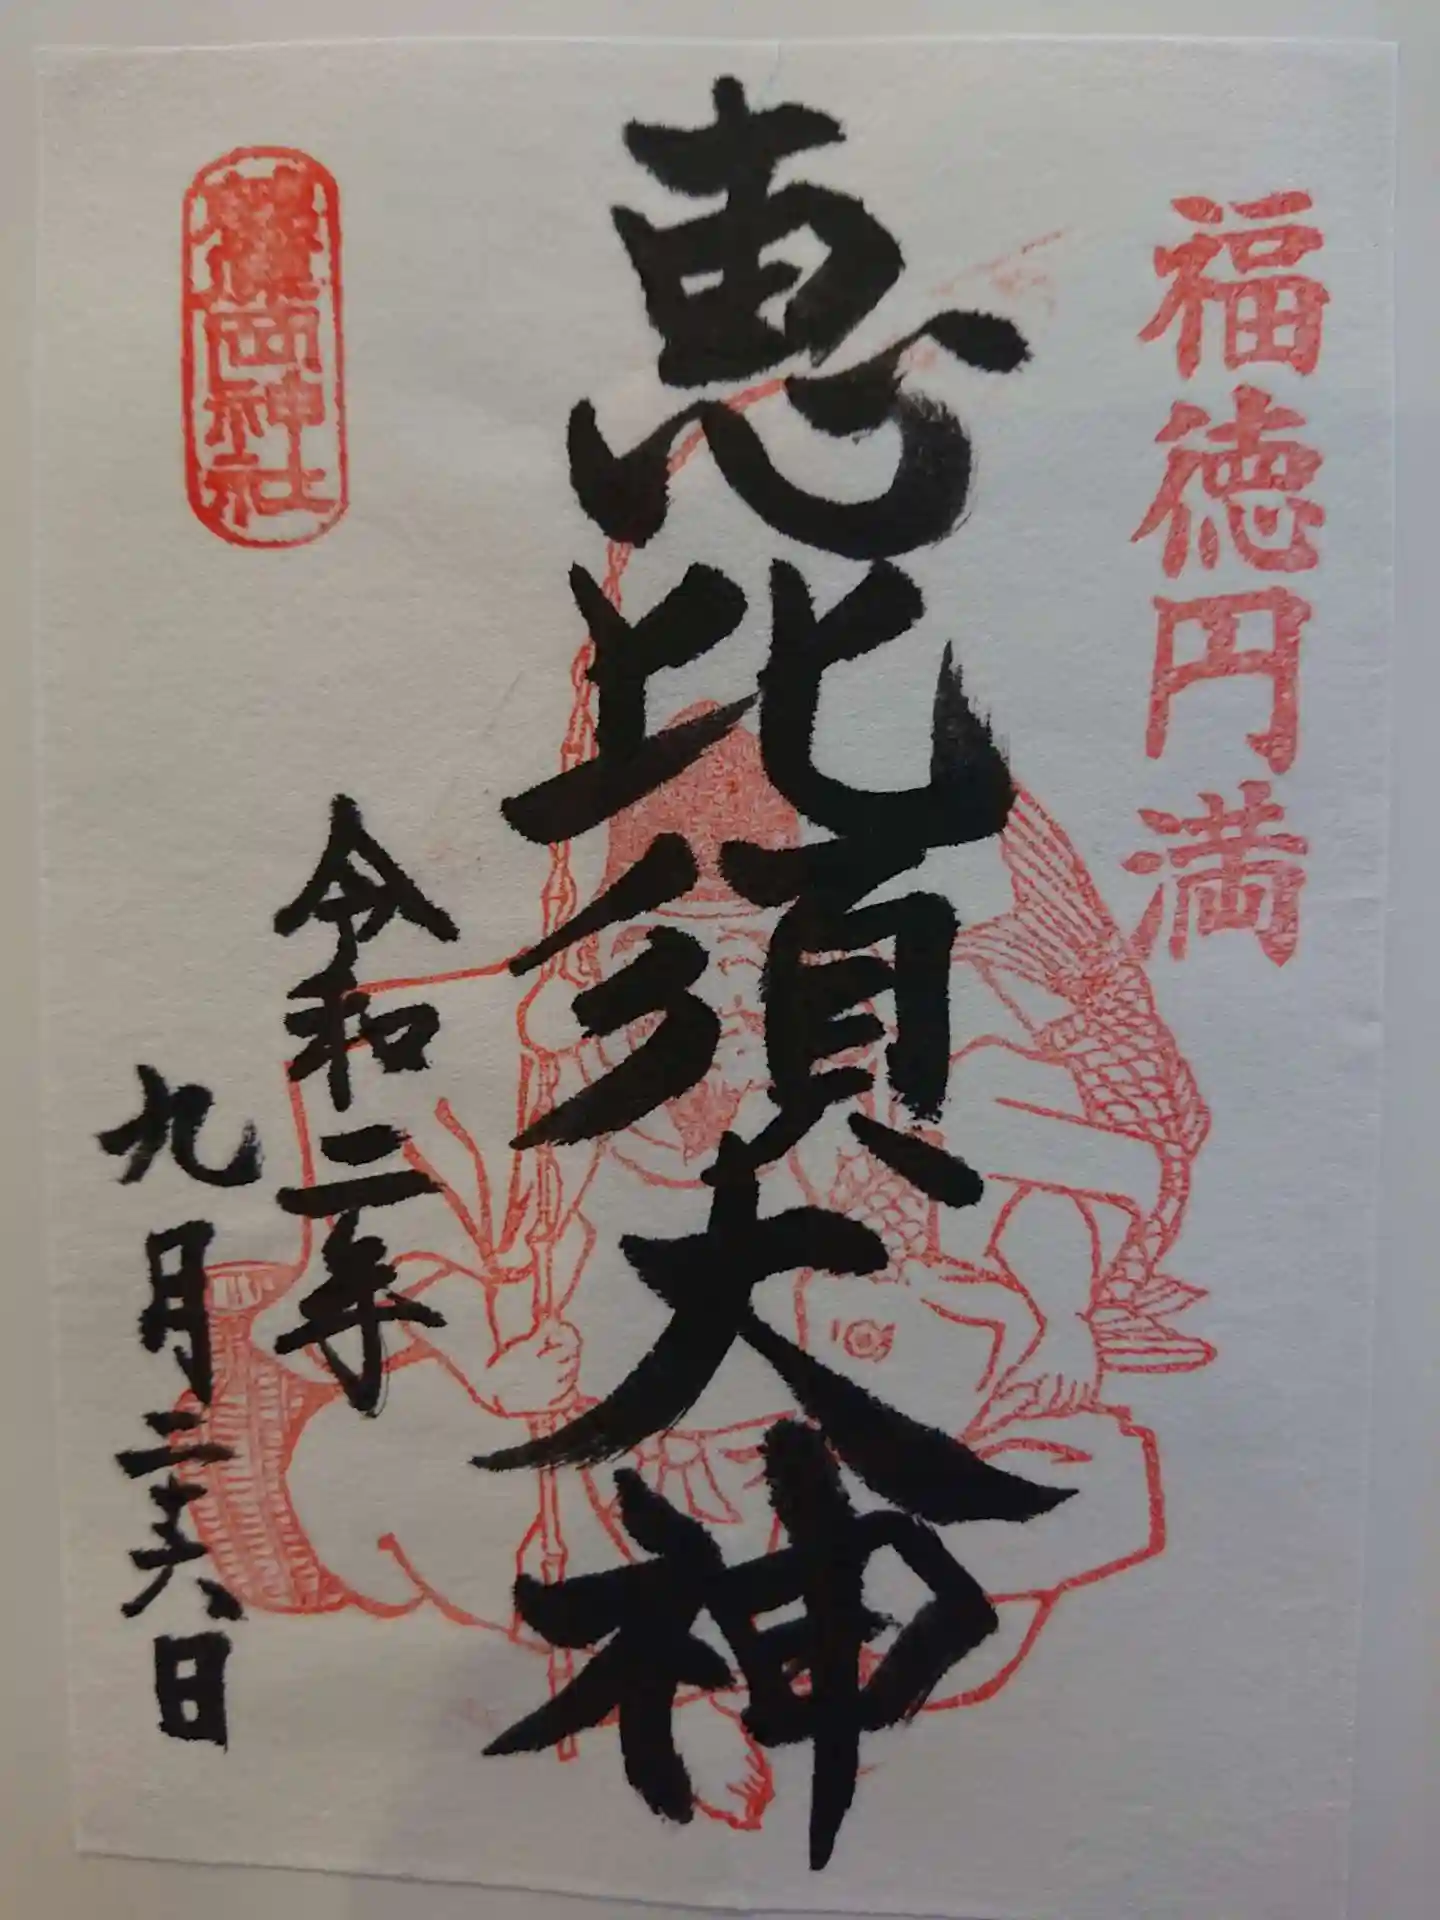 福徳円満
恵比須大神
令和二年
九月二十六日
岡神社